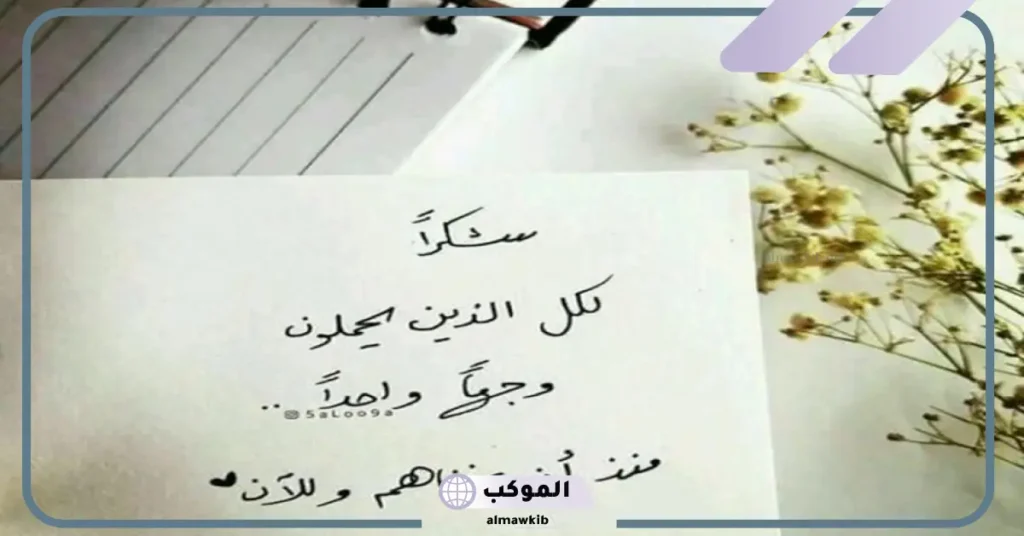 شكراً
لكل الذين يحملون
وجهاً واحداً ..
5aLoo9a
منذ أن وللآن
الموكب
almawkib